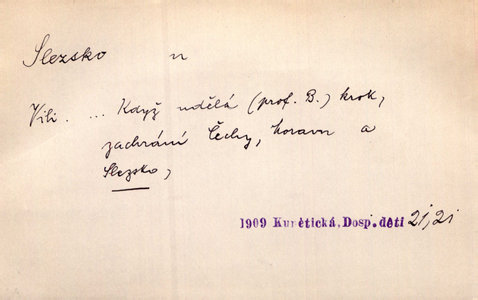 Slezsko n
Vili. ... Když udělá (prof. B.) krok,
zachrání Čechy, Moravu a
Slezsko,
1909 Kunětická, Dosp. děti 21,21